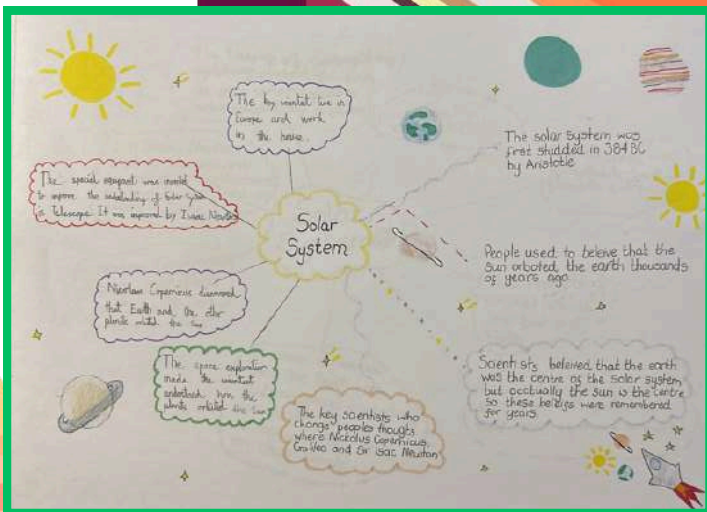 The key
Europe and work
in the house.
The special equipment was
to improve the understanding of Solar System
is Telescope. It was improved by Isaac Newton
Solar
System
Nicolaus Copernicus discovered
that Earth and the other
planets orbited the Sun
The space exploration
made the
understand how the
planets orbited the Sun
The key scientists who
change peoples thougts
where Nickolus Copernicus,
Galileo and Sir Isac Newton
The solar system was
first studded in 384 BC
by Aristotle
People used to beleive that the
Sun orboted the earth thousands
of years ago
Scientists beleived that the earth
was the centre of the solar system
but acctually the sun is the centre
so these were remembered
for years.